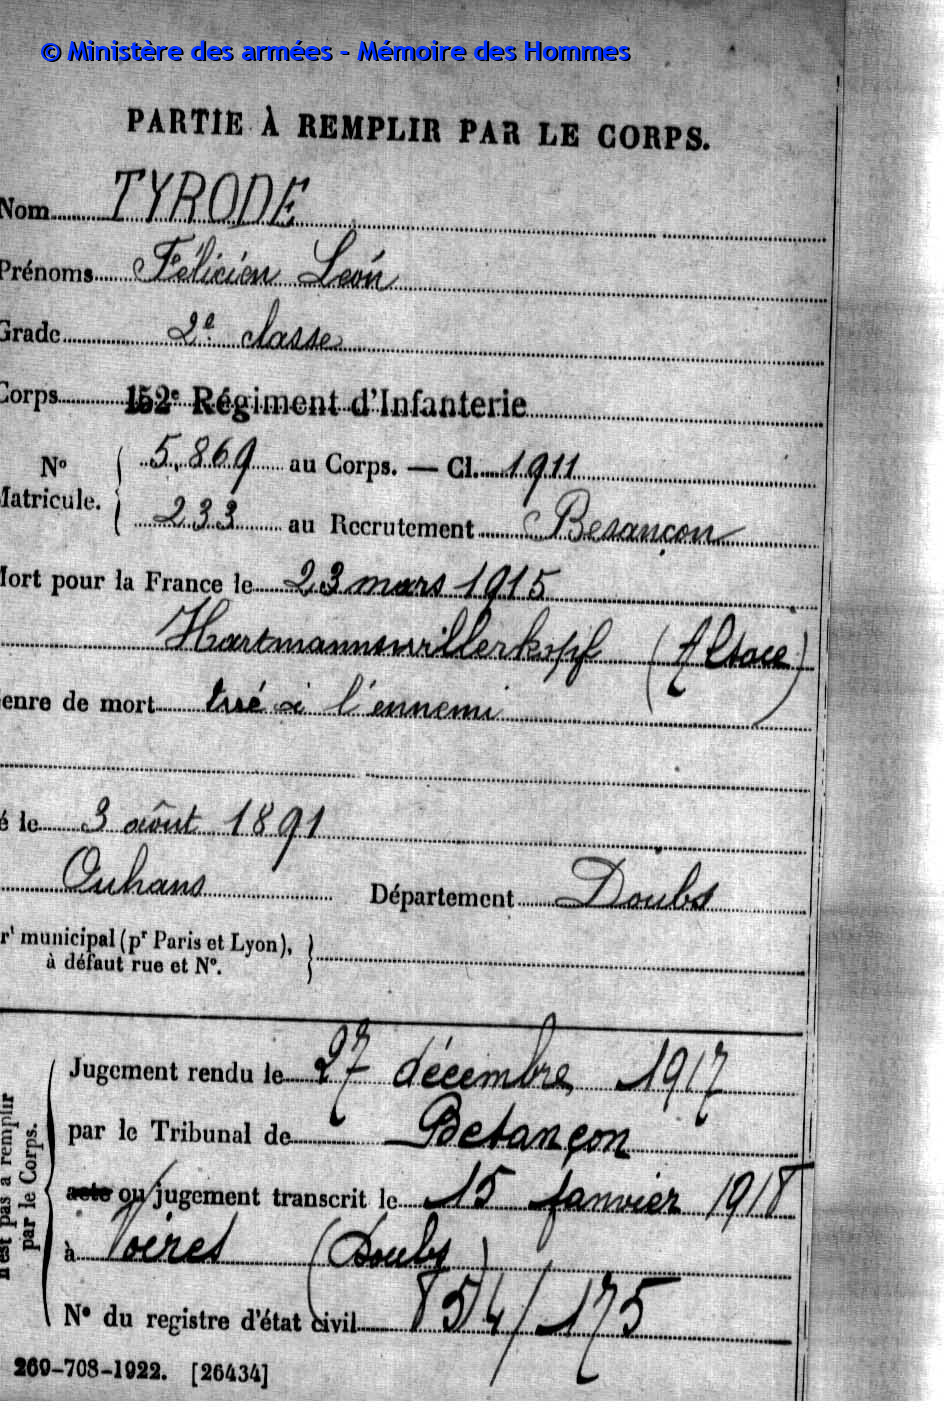 © Ministère des armées - Mémoire des Hommes
PARTIE À REMPLIR PAR LE CORPS.
Nom TYRODE
Prénoms Félicien Léon
Grade 2e classe
Corps 152e Régiment d'Infanterie
No Matricule. { 5.869 au Corps. — Cl. 1911
233 au Recrutement Besançon
Mort pour la France le 23 mars 1915
Hartmannswillerkopf (Alsace)
enre de mort tué à l'ennemi
é le 3 août 1891
Ouhans Département Doubs
rt municipal (pr Paris et Lyon),
à défaut rue et No.
Jugement rendu le 27 décembre 1917
par le Tribunal de Besançon
acte ou jugement transcrit le 15 janvier 1918
à Voires (Doubs)
No du registre d'état civil 854/175
n'est pas à remplir
par le Corps.
260-708-1922. [26434]